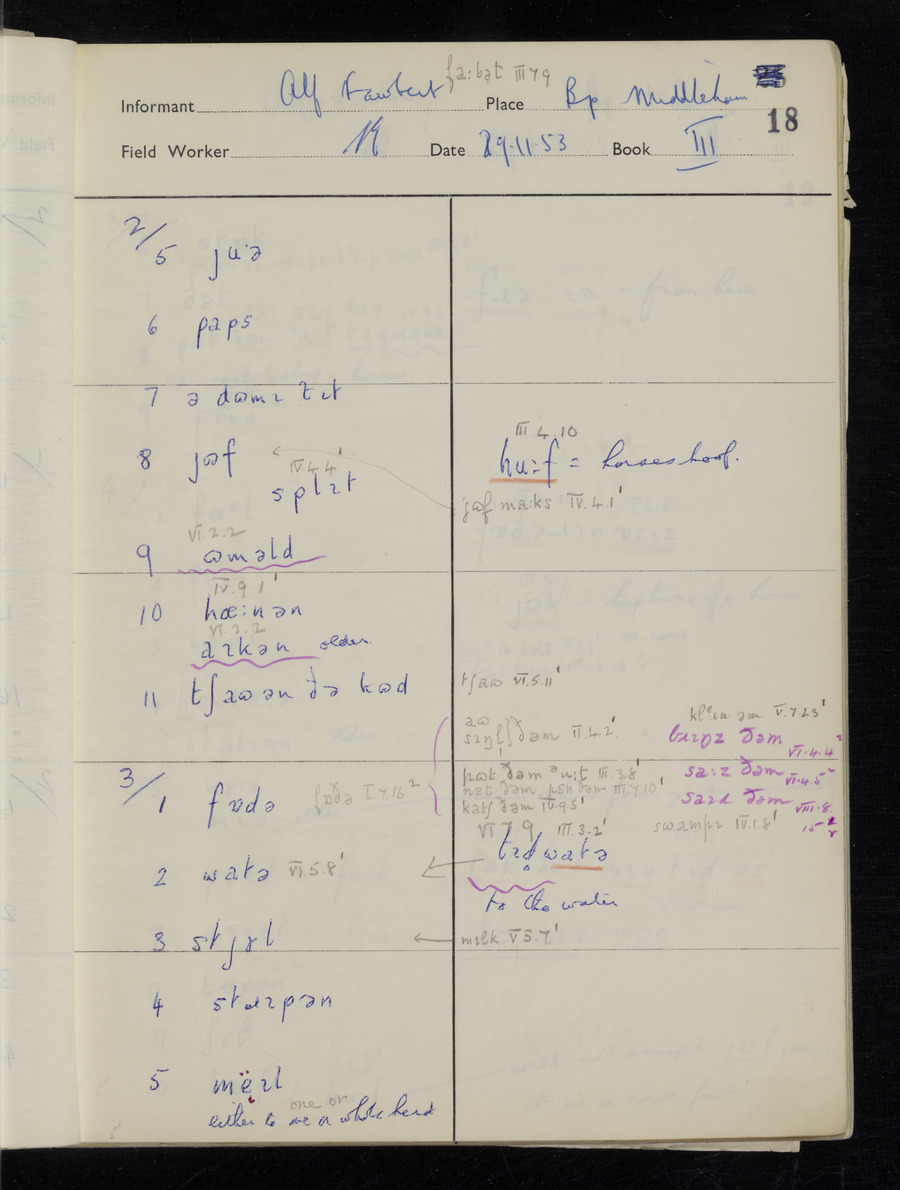 fa:bət III 7 9
Informant Alf Fawbert Place Bp Middleham
18
Field Worker Date 29·11·53 Book III
2/
5 juˑə
6 paps
7 ə dɷmɪ tɪt
8 jɷf
III 4 10
hu:f = horses hoof.
IV.4.4'
splɪt
jɷf ma:ks IV.4.1'
VI.2.2
9 ɷməld
IV.9.1'
10 hæ:nən
VI.2.2
aɪkən older
11 tʃaɷən ðə kɷd
tʃaɷ VI.5.11'
aɷ
sɪŋl} ðəm II.4.2'
V.7.23'
bɪɪŋz ðəm VI.4.4²
3/
1 fɒdə fɒðə I.7.16²
pɷt ðəm III.3.8'
sa:z ðəm VI.4.5²
net ðəm pɛn ðəm III.7.10'
saɪd ðəm VIII.8.
katʃ ðəm IV.9.5'
15²
VI 7.9 III.3.2'
swampɪ IV.1.8'
tɪd watə
2 watə VI 5.8'
to the water
3 stjɪl
mɪlk V.5.7'
4 staɪpən
5 mëɪl
one or
either to one or whole herd